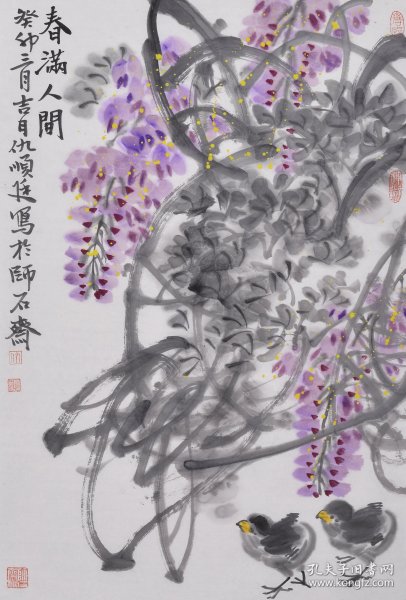 春滿人間
癸卯三月吉日仇順廷寫於師石齋
孔夫子旧书网
www.kongfz.com